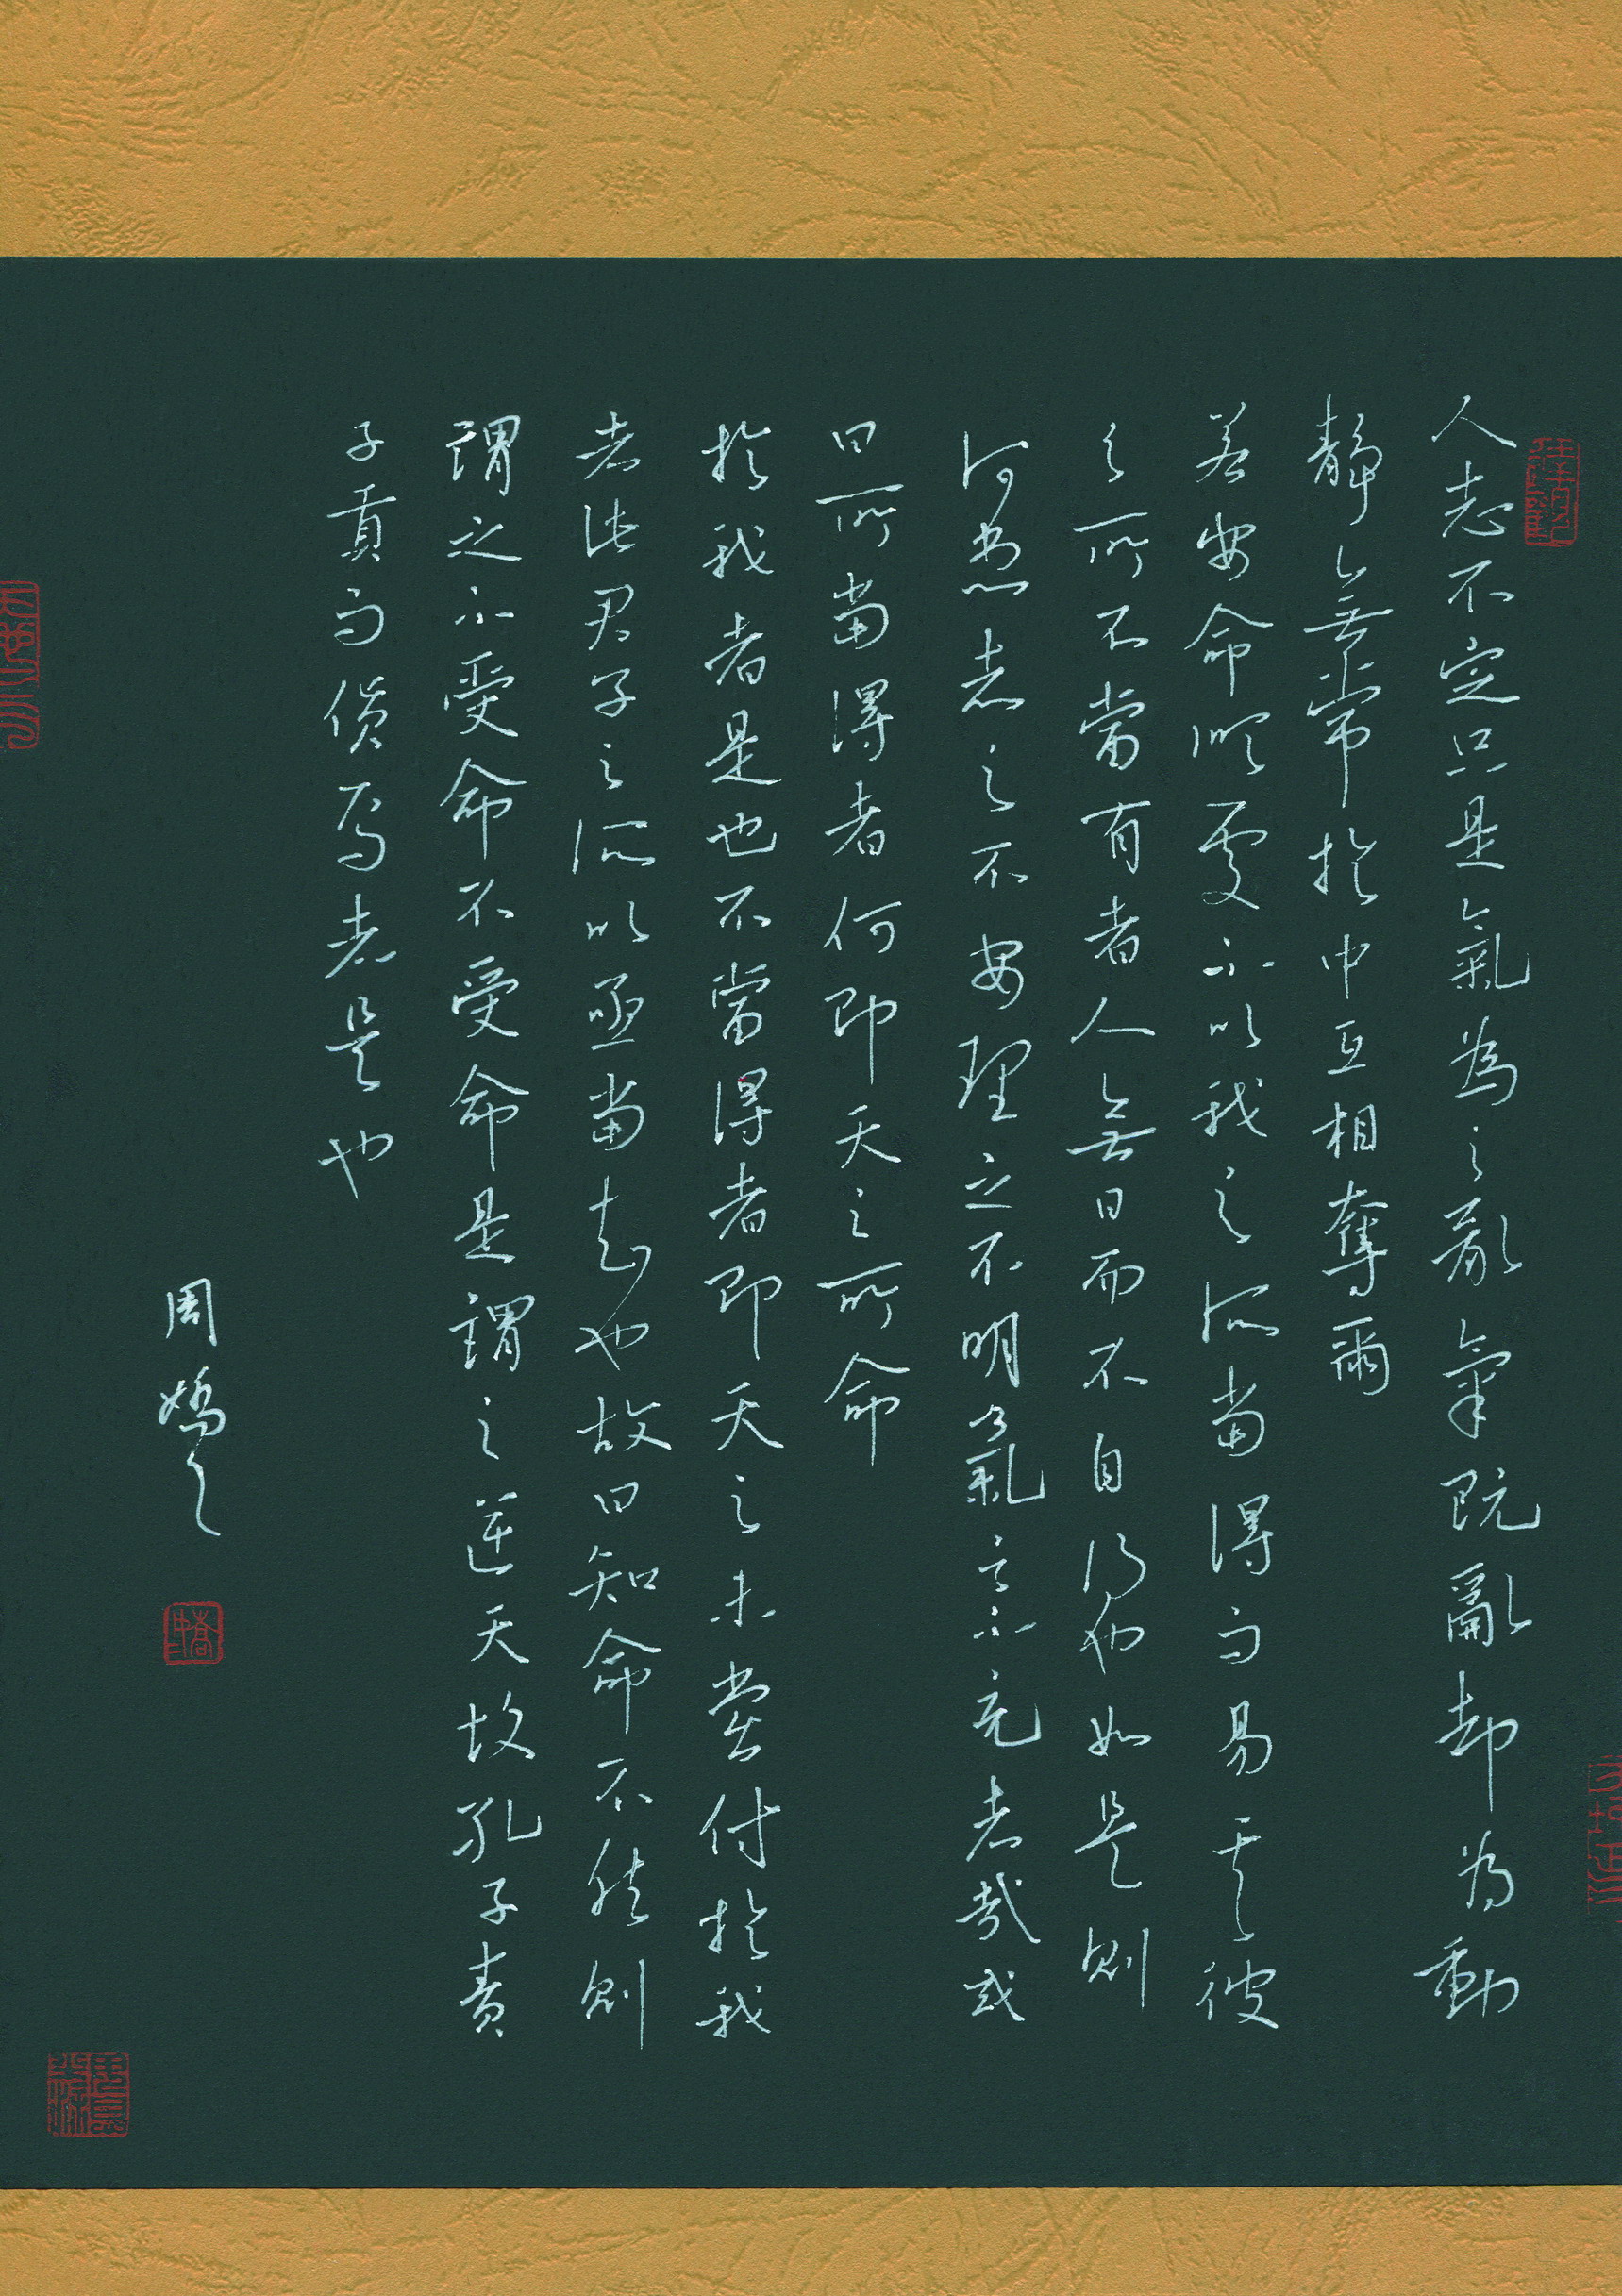 人志不定只是氣為之亂氣既亂却為動
靜無常於中互相奪爾
若安命順處不以我之所當得而易其彼
之所不當有者人無日而不自得也如是則
何患志之不安理之不明氣之不充者哉或
曰所當得者何即天之所命
於我者是也不當得者即天之未嘗付於我
者此君子之所以亟當知也故曰知命不然則
謂之不受命不受命是謂之逆天故孔子責
子貢而貨焉者是也
周嬌之